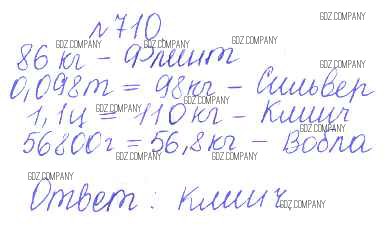 №710
86 кг - Флинт
0,098т = 98кг - Сильвер
1,1ц = 110кг - Клинч
56800г = 56,8кг - Вобла
Ответ: Клинч
GDZ.COMPANY
GDZ.COMPANY
GDZ.COMPANY
GDZ.COMPANY
GDZ.COMPANY
GDZ.COMPANY
GDZ.COMPANY
GDZ.COMPANY
GDZ.COMPANY
GDZ.COMPANY
GDZ.COMPANY
GDZ.COMPANY
GDZ.COMPANY